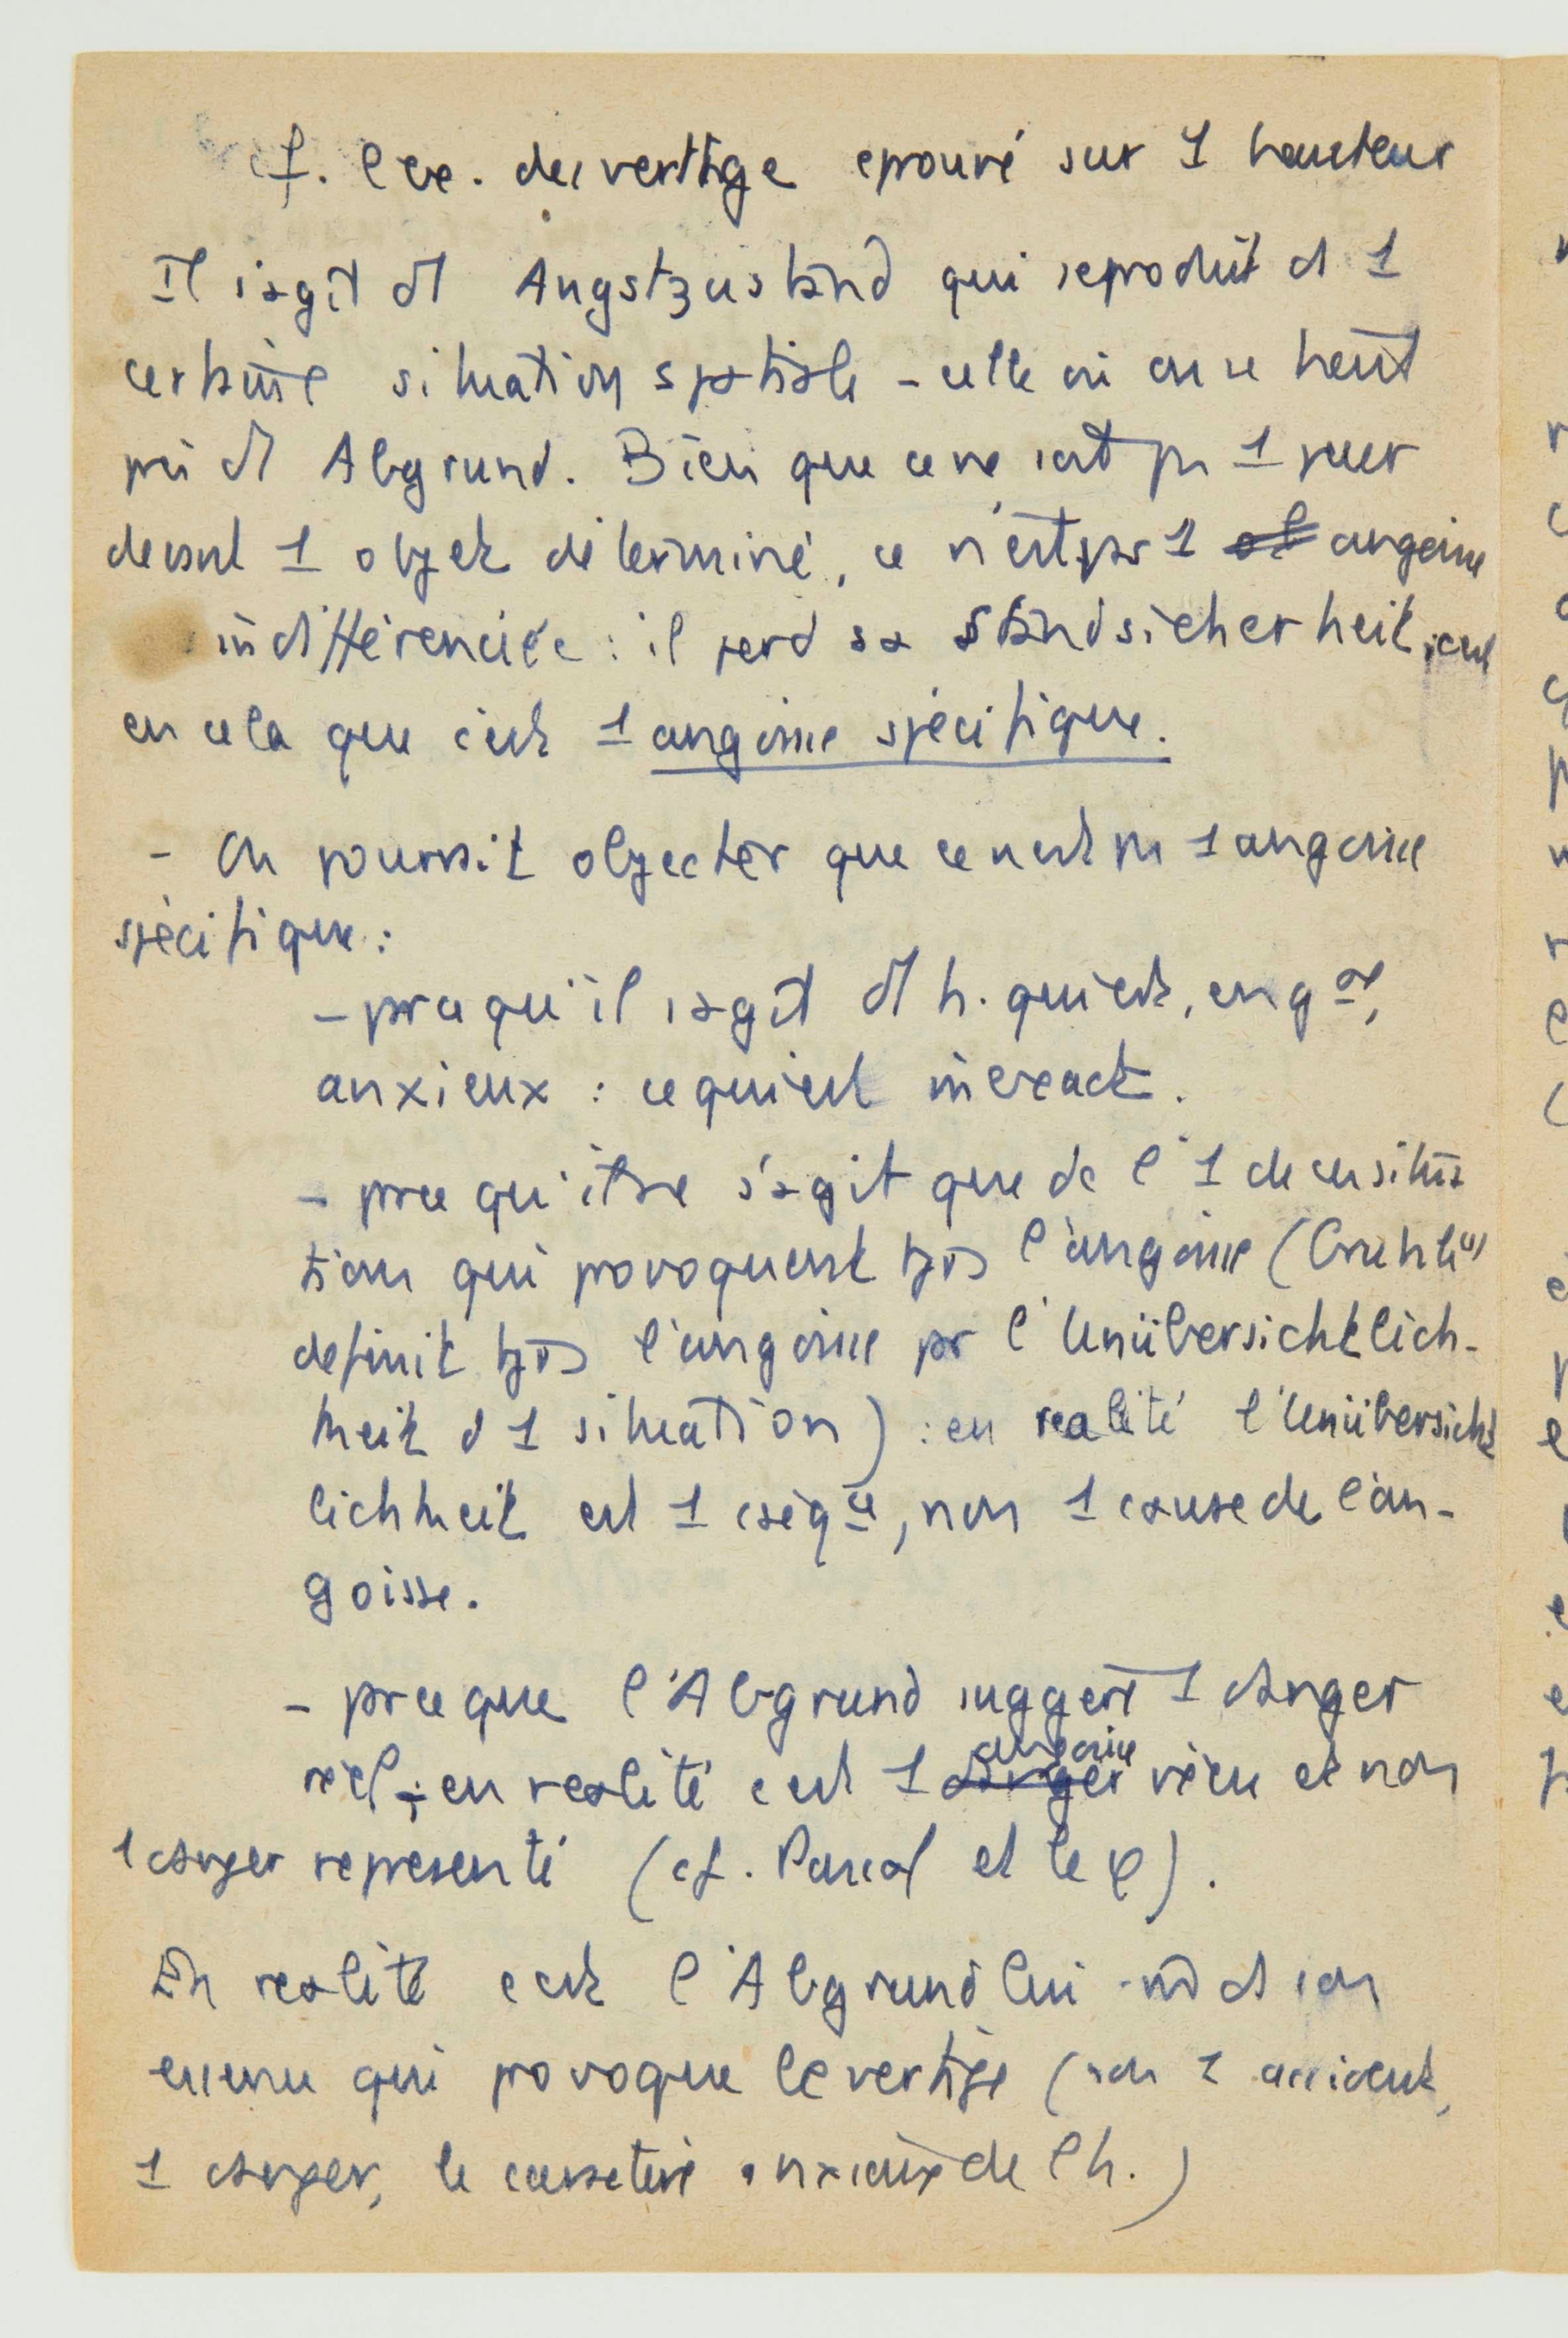 cf. l'ex. du vertige eprouvé sur 1 hauteur
Il s'agit d'1 Angstzustand qui se produit ds 1
certaine situation spatiale - celle où on se tient
près d'1 Abgrund. Bien que ce ne soit pas 1 peur
devant 1 objet déterminé, ce n'est pas 1 angoisse
indifférenciée : il perd sa Standsicherheit, c'est
en cela que c'est 1 angoisse spécifique.
- On pourrait objecter que ce n'est pas 1 angoisse
spécifique :
- parce qu'il s'agit d'1 h. qui est, en gal,
anxieux : ce qui est inexact.
- parce qu'il ne s'agit que de l'1 de ces situa
tions qui provoquent tjrs l'angoisse (Gruhle
definit tjrs l'angoisse par l'Unübersichtlich-
keit d'1 situation) : en realité l'Unübersicht
lichkeit est 1 cséqce, non 1 cause de l'an-
goisse.
- parce que l'Abgrund suggère 1 danger
réel ; en realité c'est 1 angoisse vécu et non
1 danger representé (cf. Pascal et le φ).
En realité c'est l'Abgrund lui-m̂ ds son
essence qui provoque le vertige (non 1 accident,
1 danger, le caractère anxieux de l'h.)